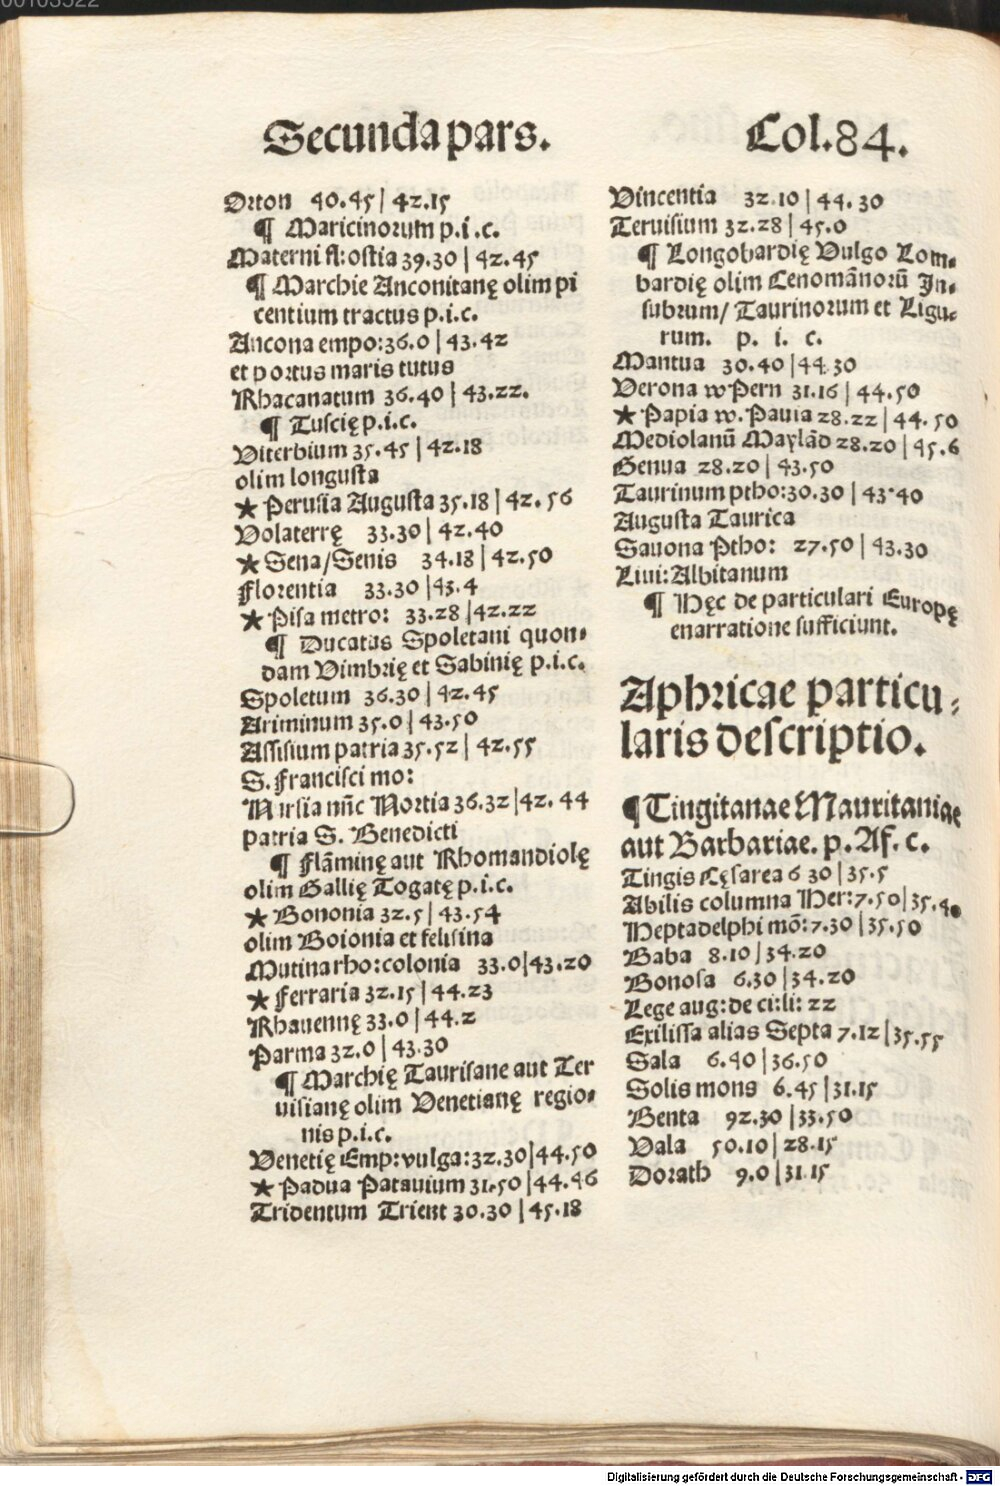 Secunda pars. Col.84.
Orton 40.45 | 42.15
¶ Maricinorum p.i.c.
Materni fl: ostia 39.30 | 42.45
¶ Marchie Anconitanę olim pi
centium tractus p.i.c.
Ancona empo: 36.0 | 43.42
et portus maris tutus
Rhacanatum 36.40 | 43.22.
¶ Tuscię p.i.c.
Viterbium 35.45 | 42.18
olim longusta
★ Perusia Augusta 35.18 | 42.56
Volaterrę 33.30 | 42.40
★ Sena/Senis 34.18 | 42.50
Florentia 33.30 | 43.4
★ Pisa metro: 33.28 | 42.22
¶ Ducatus Spoletani quon⸗
dam Vimbrię et Sabinię p.i.c.
Spoletum 36.30 | 42.45
Ariminum 35.0 | 43.50
Assisium patria 35.52 | 42.55
S. Francisci mo:
Nursia nūc Nortia 36.32 | 42.44
patria S. Benedicti
¶ Flāminę aut Rhomandiolę
olim Gallię Togatę p.i.c.
★ Bononia 32.5 | 43.54
olim Boionia et felisina
Mutina rho: colonia 33.0 | 43.20
★ Ferraria 32.15 | 44.23
Rhauennę 33.0 | 44.2
Parma 32.0 | 43.30
¶ Marchię Taurisane aut Ter
uisianę olim Venetianę regio⸗
nis p.i.c.
Venetię Emp: vulga: 32.30 | 44.50
★ Padua Patauium 31.50 | 44.46
Tridentum Trient 30.30 | 45.18
Vincentia 32.10 | 44.30
Teruisium 32.28 | 45.0
¶ Longobardię Vulgo Lom⸗
bardię olim Cenomānorū In⸗
subrum/ Taurinorum et Ligu⸗
rum. p. i. c.
Mantua 30.40 | 44.30
Verona w Pern 31.16 | 44.50
★ Papia w. Pauia 28.22 | 44.50
Mediolanū Maylād 28.20 | 45.6
Genua 28.20 | 43.50
Taurinum ptho: 30.30 | 43.40
Augusta Taurica
Sauona Ptho: 27.50 | 43.30
Liui: Albitanum
¶ Hęc de particulari Europę
enarratione sufficiunt.
Aphricae particu⸗
laris descriptio.
¶ Tingitanae Mauritaniae
aut Barbariae. p. Af. c.
Tingis Cęsarea 6 30 | 35.5
Abilis columna Her: 7.50 | 35.40
Heptadelphi mō: 7.30 | 35.50
Baba 8.10 | 34.20
Bonosa 6.30 | 34.20
Lege aug: de ci: li: 22
Exilissa alias Septa 7.12 | 35.55
Sala 6.40 | 36.50
Solis mons 6.45 | 31.15
Benta 92.30 | 33.50
Vala 50.10 | 28.15
Dorath 9.0 | 31.15
Digitalisierung gefördert durch die Deutsche Forschungsgemeinschaft - DFG